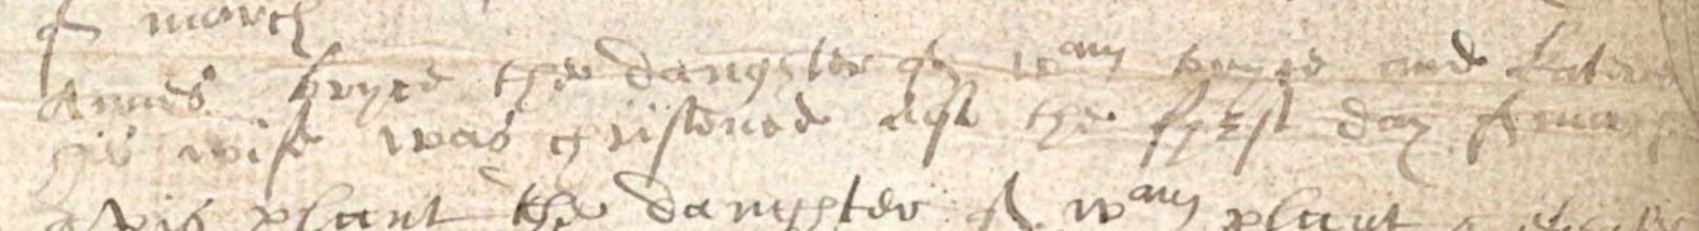 of march
Annes bryce the daughter of w^am bryce and Katere
his wife was cristened also the fyrst day of marc
Avis plant the daughter of w^am plant